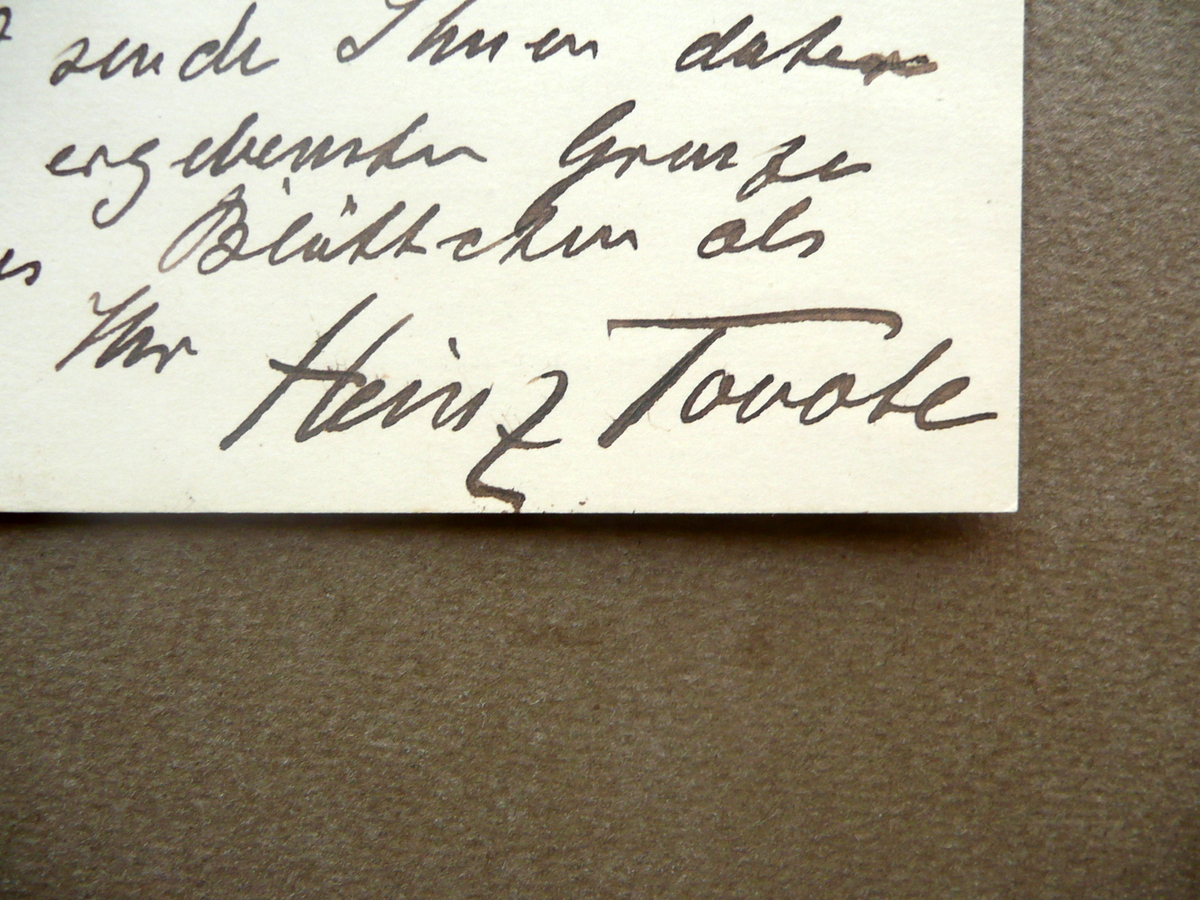 sende Ihnen
ergebensten Grusze
Blättchen als
Ihr Heinz Tovote